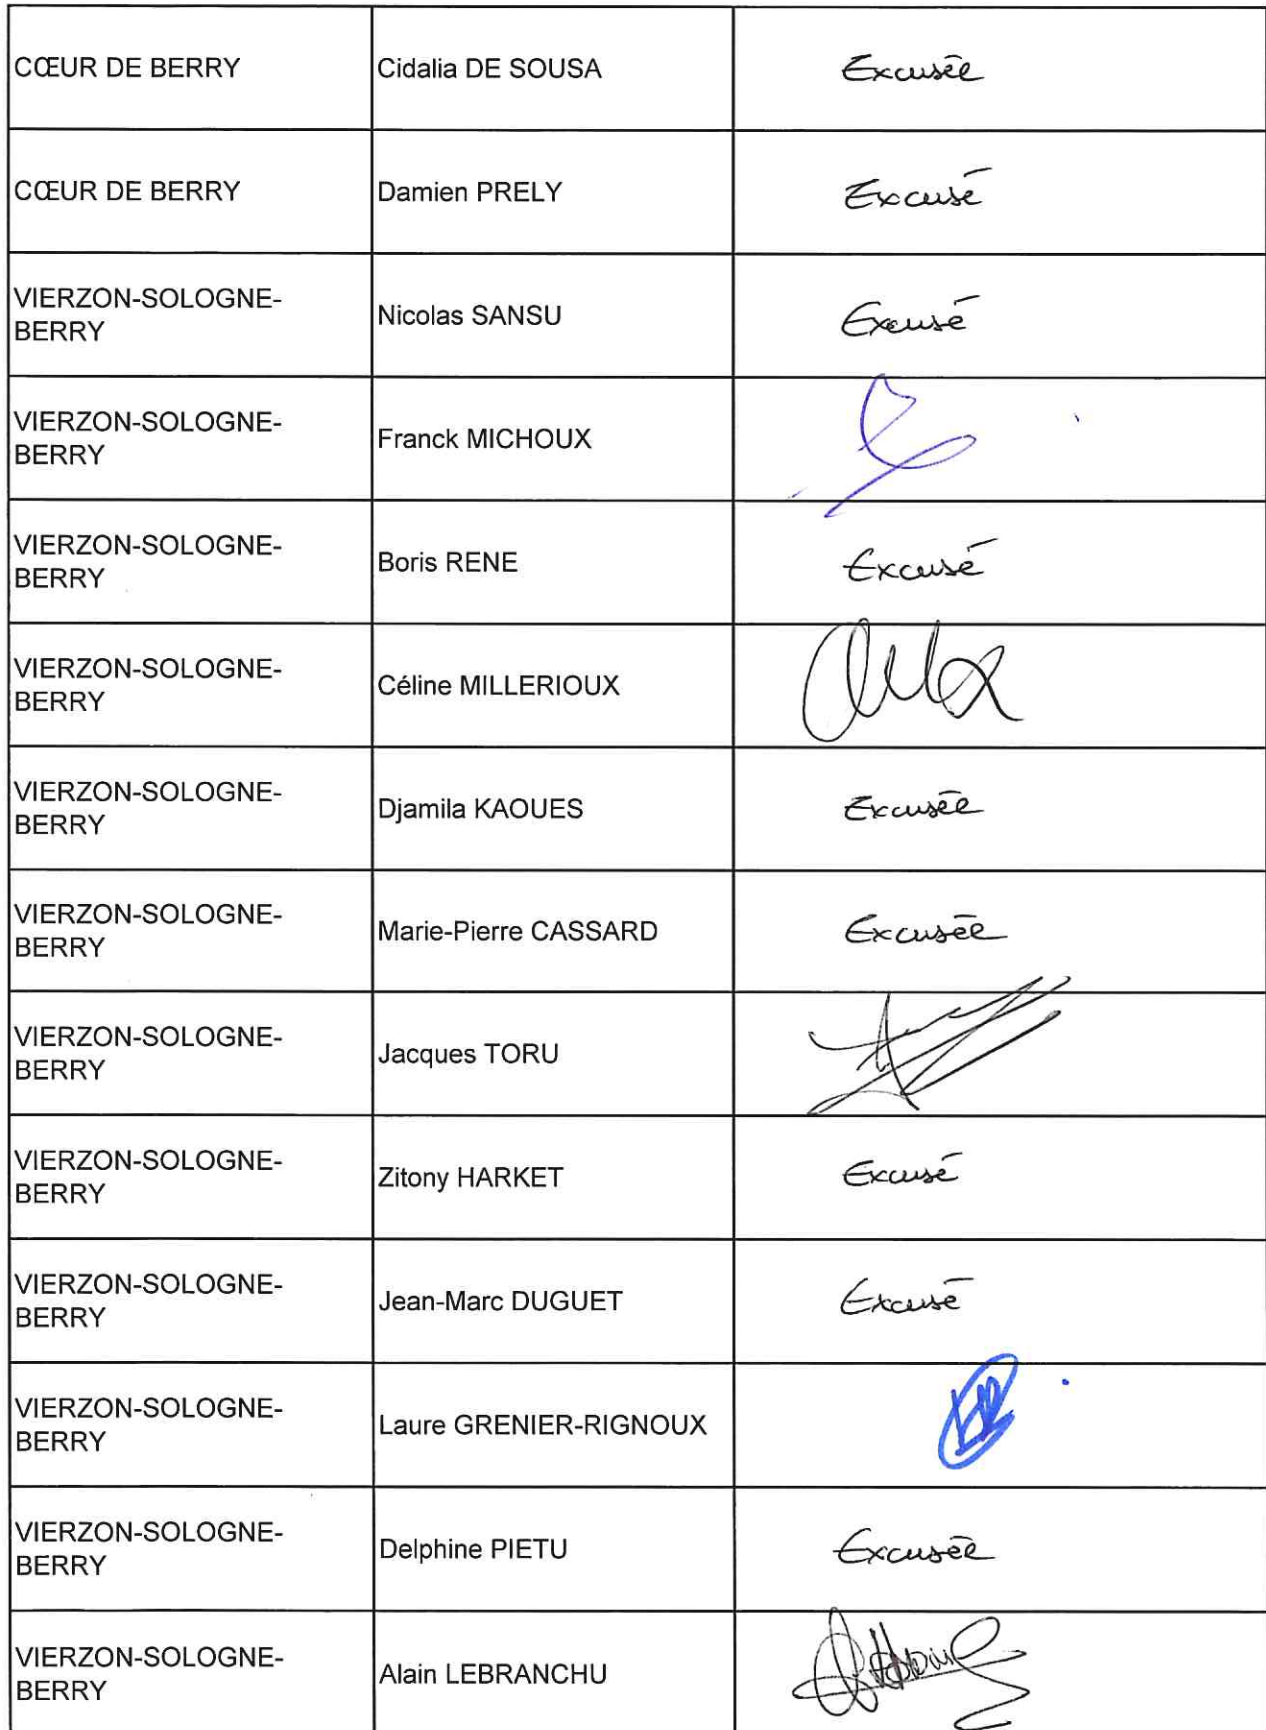 CŒUR DE BERRY Cidalia DE SOUSA Excusée
CŒUR DE BERRY Damien PRELY Excusé
VIERZON-SOLOGNE-
BERRY Nicolas SANSU Excusé
VIERZON-SOLOGNE-
BERRY Franck MICHOUX
VIERZON-SOLOGNE-
BERRY Boris RENE Excusé
VIERZON-SOLOGNE-
BERRY Céline MILLERIOUX
VIERZON-SOLOGNE-
BERRY Djamila KAOUES Excusée
VIERZON-SOLOGNE-
BERRY Marie-Pierre CASSARD Excusée
VIERZON-SOLOGNE-
BERRY Jacques TORU
VIERZON-SOLOGNE-
BERRY Zitony HARKET Excusé
VIERZON-SOLOGNE-
BERRY Jean-Marc DUGUET Excusé
VIERZON-SOLOGNE-
BERRY Laure GRENIER-RIGNOUX
VIERZON-SOLOGNE-
BERRY Delphine PIETU Excusée
VIERZON-SOLOGNE-
BERRY Alain LEBRANCHU